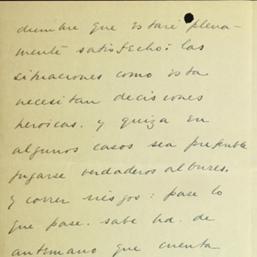 dumbre que estaré plena-
mente satisfecho: las
situaciones como esta
necesitan decisiones
heroicas. y quiza en
algunos casos sea preferible
jugarse verdaderos albures.
y correr riesgos: pase lo
que pase. sabe Ud. de
antemano que cuenta